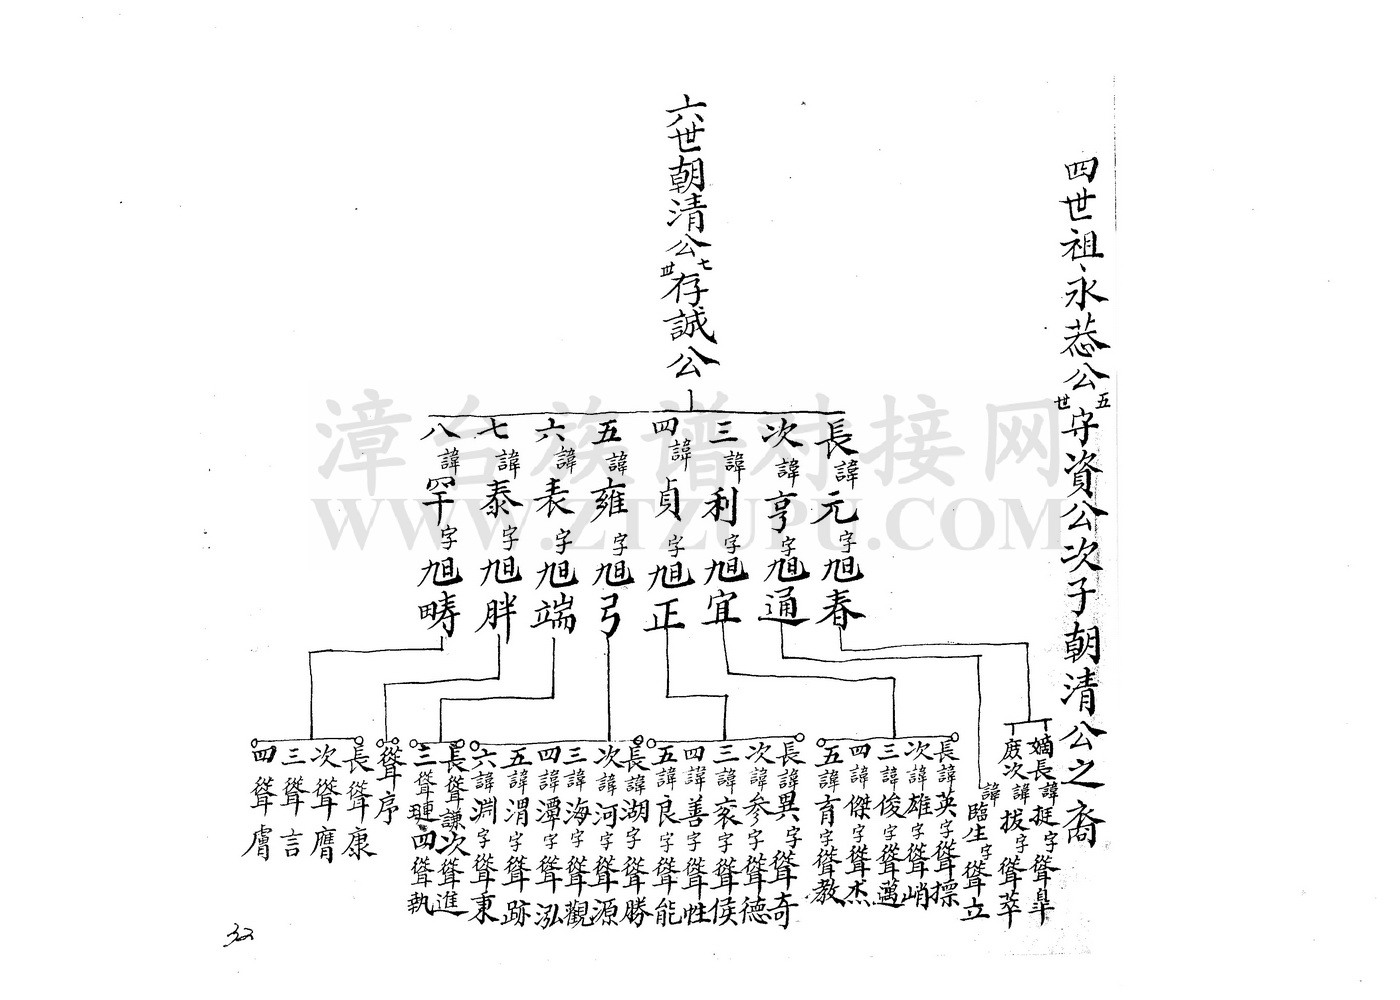 四世祖永惎公五世守資公次子朝清公之裔
六世朝清公七世存誠公
長諱元字旭春
次諱亨字旭通
三諱利字旭宜
四諱貞字旭正
五諱雍字旭弓
六諱表字旭端
七諱泰字旭胖
八諱罕字旭疇
嫡長諱挺字聳皐
庶次諱拔字聳萃
諱臨生字聳立
長諱英字聳標
次諱雄字聳峭
三諱俊字聳邁
四諱傑字聳杰
五諱育字聳教
長諱異字聳奇
次諱參字聳德
三諱袞字聳侯
四諱善字聳性
五諱良字聳能
長諱湖字聳勝
次諱河字聳源
三諱海字聳觀
四諱潭字聳泓
五諱渭字聳跡
六諱淵字聳東
長聳謙次聳進
三聳璉四聳執
聳序
長聳康
次聳膺
三聳言
四聳膚
32
漳台族谱对接网
WWW.ZTZUPU.COM